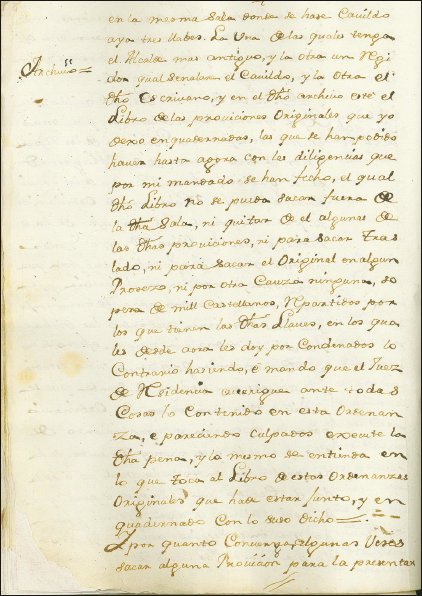 en la mesma Sala donde se hase Cavildo
aya tres llabes. La Una de las quales tenga
el Alcalde mas antiguo, y la otra un Regi
dor qual Señalare el Cavildo, y la otra el
Archivo =
dho Escrivano, y en el dho archivo esté el
Libro de las proviciones Originales que yo
dexo enquadernadas, las que se han podido
haver hasta agora con las diligencias que
por mi mandado se han fcho, el qual
dho Libro no se pueda sacar fuera de
la dha Sala, ni quitar de el algunas de
las dhas proviciones, ni para sacar tras
lado, ni para sacar el Original en algun
Proceso, ni por otra Cauza ninguna, so
pena de mill Castellanos, Repartidos por
los que tienen las dhas Llaves, en los qua
les desde aora les doy por Condenados lo
Contrario haciendo, é mando que el Juez
de Residencia averigue ante todas
Cosas lo Contenido en esta Ordenan
za, e pareciendo culpados execute la
dha pena, y lo mesmo se entienda en
lo que toca al Libro de estas Ordenanzas
Originales que hade estar junto, y en
quadernado con lo suso dicho =
Y por quanto Converga algunas Veces
sacar alguna Provicion para la presentar